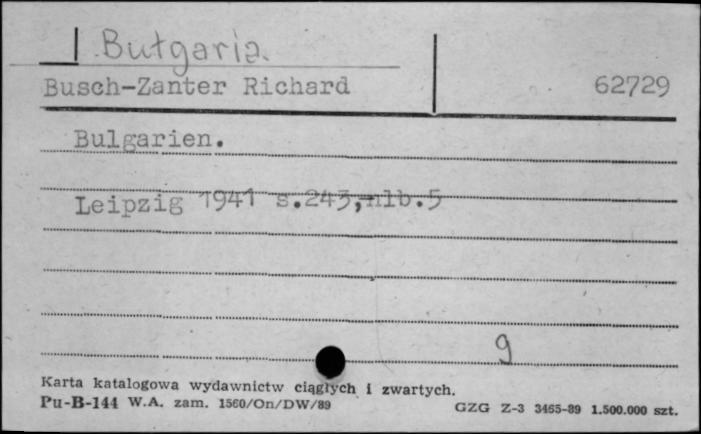 Bułgaria.
Busch-Zanter Richard 62729
Bulgarien.
Leipzig 1941 s.243, nlb.5
9
Karta katalogowa wydawnictw ciągłych i zwartych.
Pu-B-144 W.A. zam. 1560/On/DW/89 GZG Z-3 3465-89 1.500.000 szt.